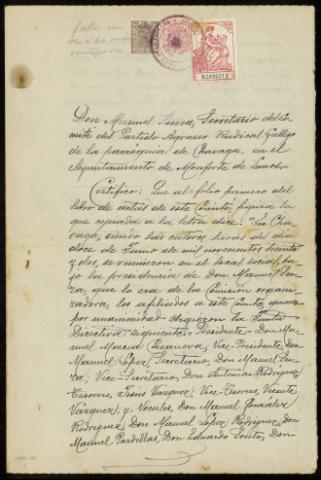 falta un
Don Manuel Souza, Secretario del Co-
mité del Partido Agrario Radical Gallego
de la parroquia de Chavaga, en el
Ayuntamiento de Monforte de Lemos.
Certifico: Que al folio primero del
libro de actas de este Comité, figura la
que copiada a la letra dice: "En Cha-
vaga, siendo las catorce horas del día
doce de Junio de mil novecientos treinta
y dos, se reunieron en el local social, ba-
jo la presidencia de Don Manuel Sou-
za, que lo era de la Comisión organiza-
dora, los afiliados a este Comité, quienes
por unanimidad eligieron la Junta
Directiva siguiente: Presidente - Don Ma-
nuel Casanova; Vice-Presidente, Don
Manuel López; Secretario, Don Manuel Sou-
za; Vice-Secretario, Don Antonio Rodríguez;
Tesorero, Jesús Vazquez; Vice-Tesorero, Vicente
Vazquez; y Vocales, Don Manuel González
Rodríguez, Don Manuel López Rodríguez, Don
Manuel Pardellas, Don Eduardo Souto, Don